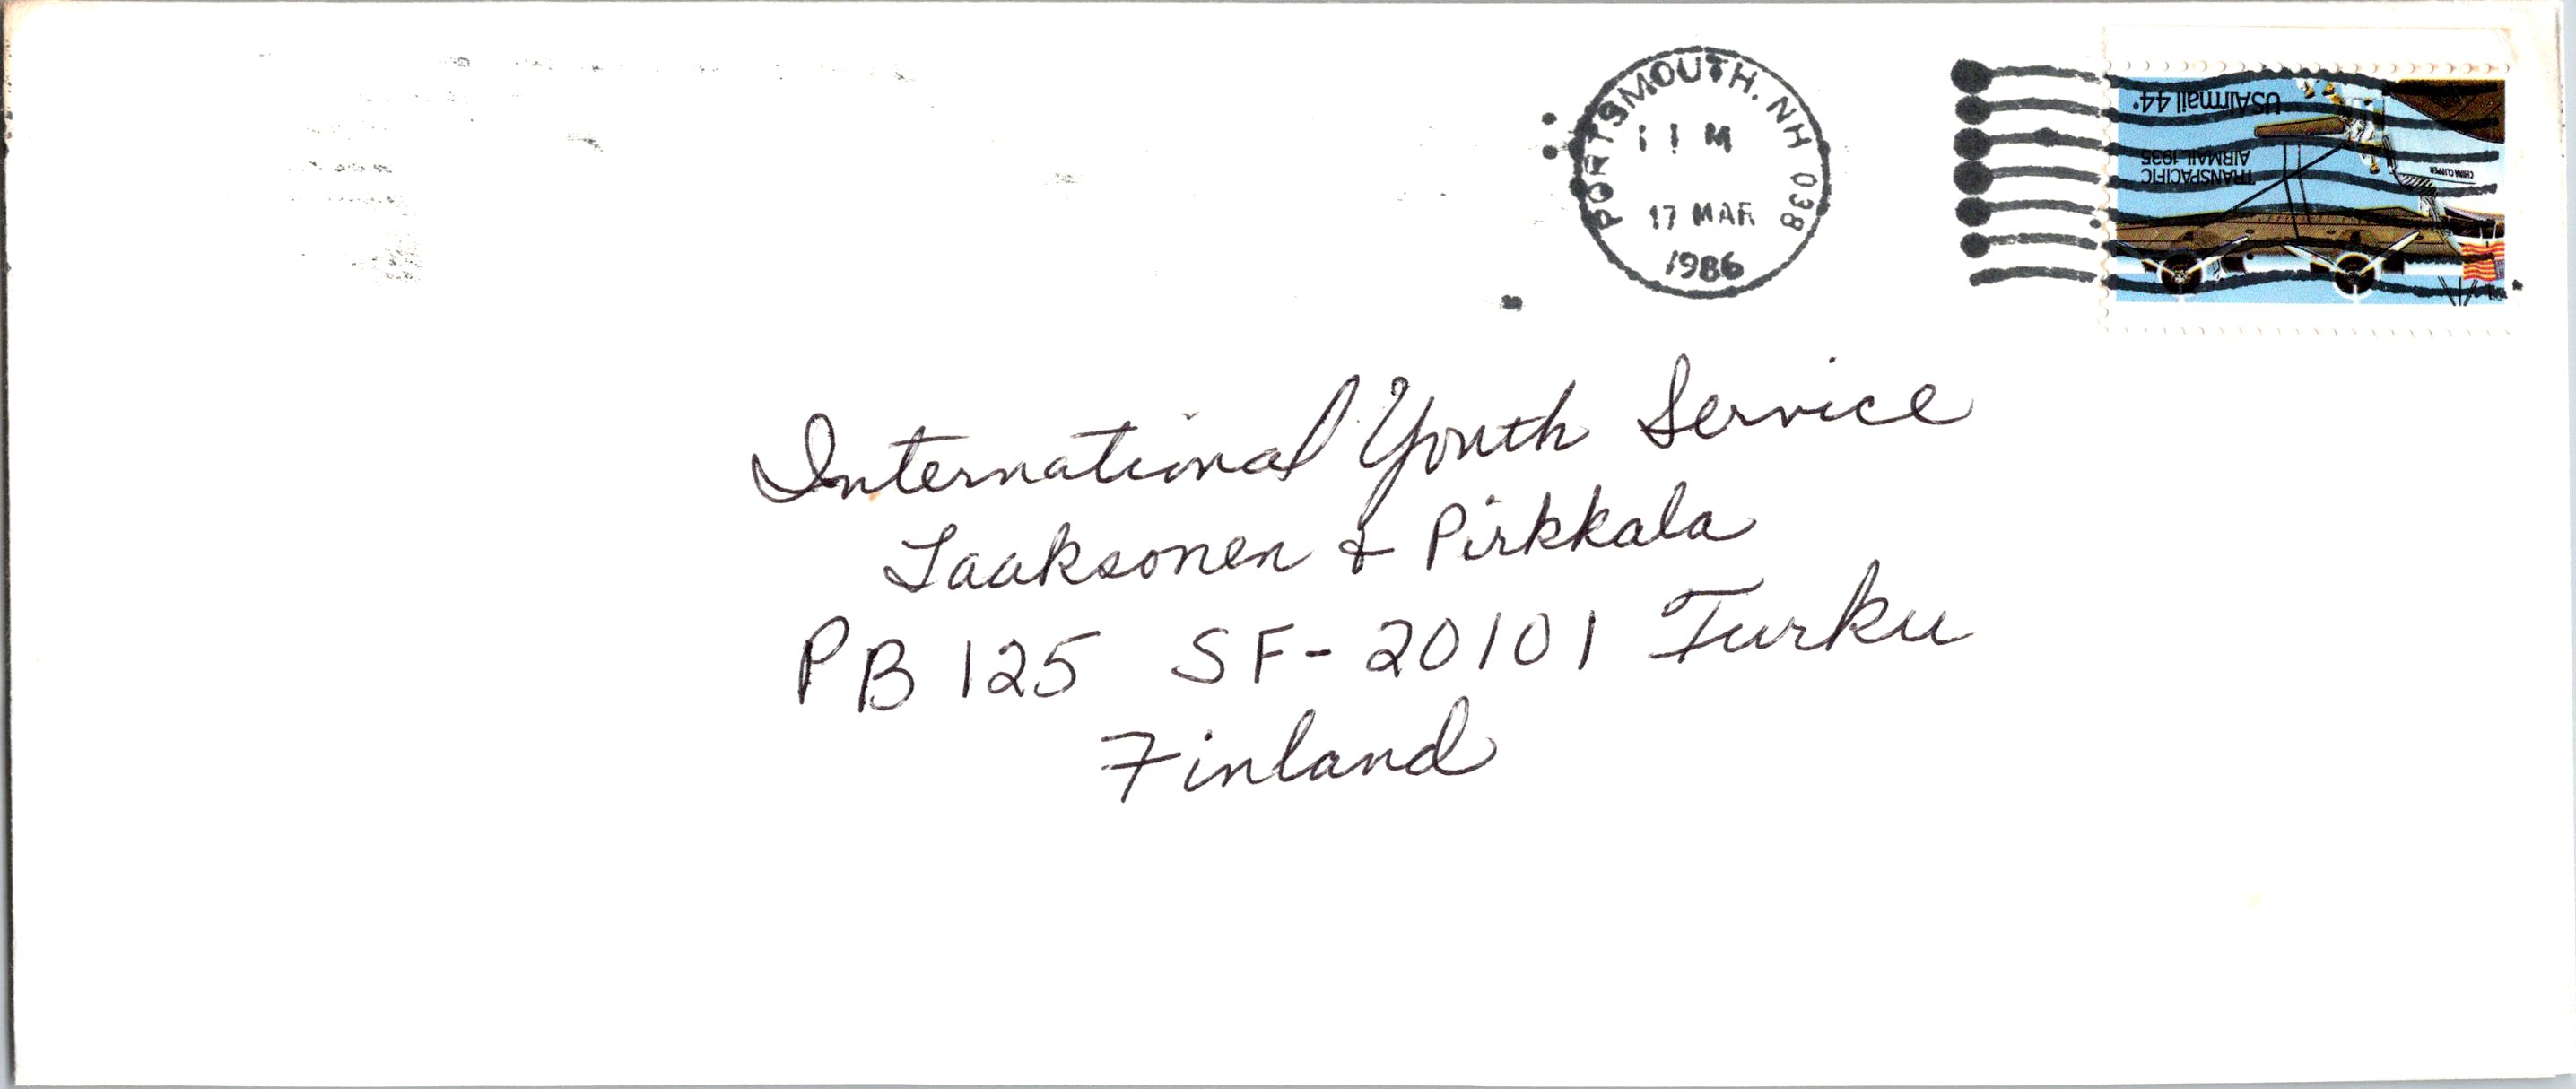 PORTSMOUTH, NH 038
17 MAR
1986
USAirmail 44¢
TRANSPACIFIC
AIRMAIL 1935
CHINA CLIPPER
International Youth Service
Laaksonen & Pirkkala
PB 125 SF-20101 Turku
Finland